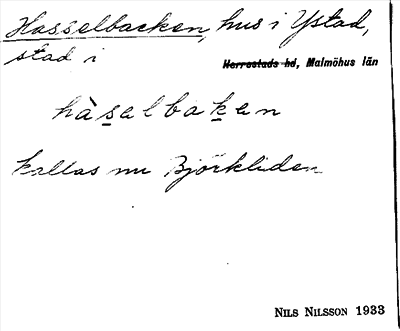 Hasselbacken, hus i Ystad,
stad i Herrestads hd, Malmöhus län
hàsalbakan
kallas nu Björkliden
NILS NILSSON 1933